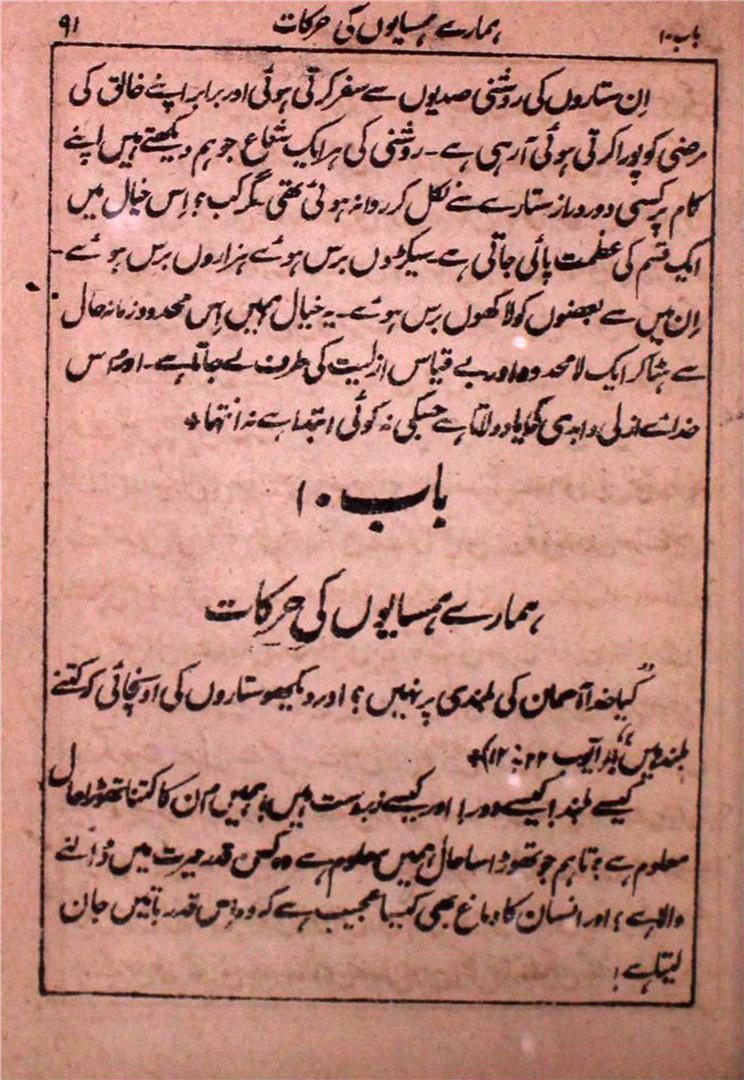 باب ۱۰ ہمارے ہمسایوں کی حرکات ۹۱
اِن ستاروں کی روشنی صدیوں سے سفر کرتی ہوئی اور برابر اپنے خالق کی
مرضی کو پورا کرتی ہوئی آرہی ہے۔ روشنی کی ہر ایک شعاع جو ہم دیکھتے ہیں اپنے
کام پر کسی دور دراز ستارے سے نکل کر روانہ ہوئی تھی مگر کب؟ اِس خیال میں
ایک قسم کی عظمت پائی جاتی ہے سیکڑوں برس ہوئے ہزاروں برس ہوئے۔
اِن میں سے بعضوں کو لاکھوں برس ہوئے۔ یہ خیال ہمیں اِس محدود زمانہ حال
سے ہٹا کر ایک لامحدود اور بے قیاس ازلیت کی طرف لے جاتا ہے۔ اور اُس
خدائے ازلی و ابدی کی یاد دلاتا ہے جسکی نہ کوئی ابتدا ہے نہ انتہا +
باب ۱۰
ہمارے ہمسایوں کی حرکات
”کیا خدا آسمان کی بلندی پر نہیں؟ اور دیکھو ستاروں کی اونچائی کو کتنے
بلند ہیں“ (ایوب ۲۲: ۱۲) +
کیسے بلند! کیسے دور! اور کیسے زبردست ہیں! ہمیں اُن کا کتنا تھوڑا حال
معلوم ہے؟ تاہم جو تھوڑا سا حال ہمیں معلوم ہے وہ کس قدر حیرت میں ڈالنے
والا ہے! اور انسان کا دماغ بھی کیسا عجیب ہے کہ وہ اِس قدر باتیں جان
لیتا ہے!